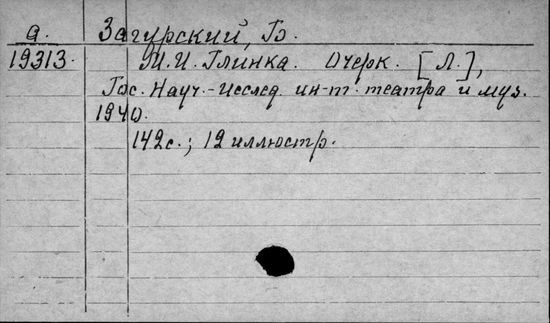 а. Загурский, Б.
19313. М.И. Глинка. Очерк. [Л.],
Гос. Науч.-Исслед. ин-т. театра и муз.
1940.
142с.; 12 иллюстр.